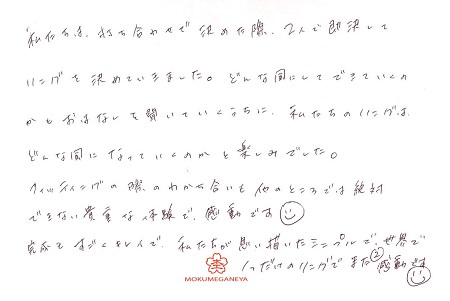 私たちは、打ち合わせで決めた際、2人で即決して
リングを決めていきました。どんな風にしてできていくの
かもおはなしを聞いていくうちに、私たちのリングは、
どんな風になっていくのかと楽しみでした。
フィッティングの際のわかち合いも他のところでは絶対
できない貴重な体験で、感動です
完成もすごくキレイで、私たちが思い描いたシンプルで、世界で
1つだけのリングでまた②感動です
MOKUMEGANEYA